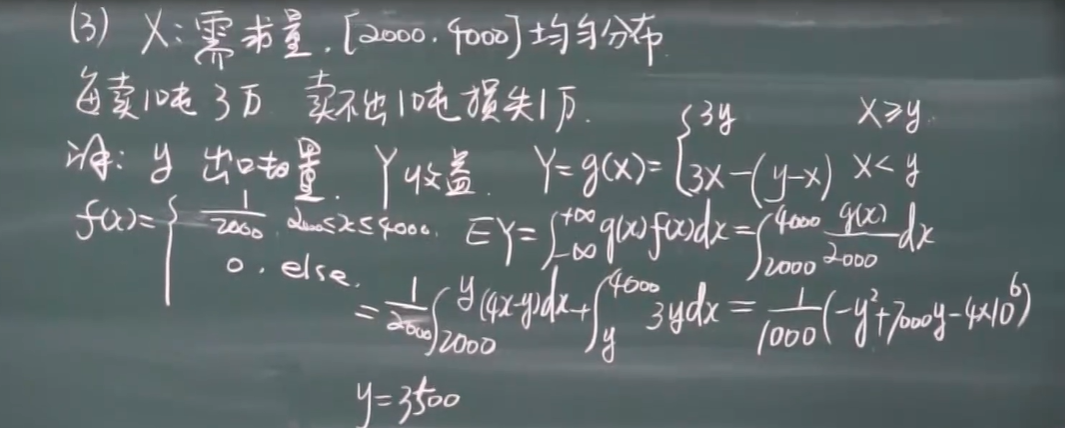 (3) X:需求量.[2000.4000]均匀分布
每卖10吨 3万 卖不出10吨损失1万.
设: y 出口量. Y收益. Y=g(x)={3y X≥y. 3X-(y-x) X<y
f(x)={1/2000. 2000≤x≤4000. 0. else. EY=∫_{-∞}^{+∞}g(x)f(x)dx=∫_{2000}^{4000} g(x)/2000 dx
=1/2000∫_{2000}^{y}(4x-y)dx+∫_{y}^{4000}3ydx=1/1000(-y²+7000y-4×10⁶)
y=3500